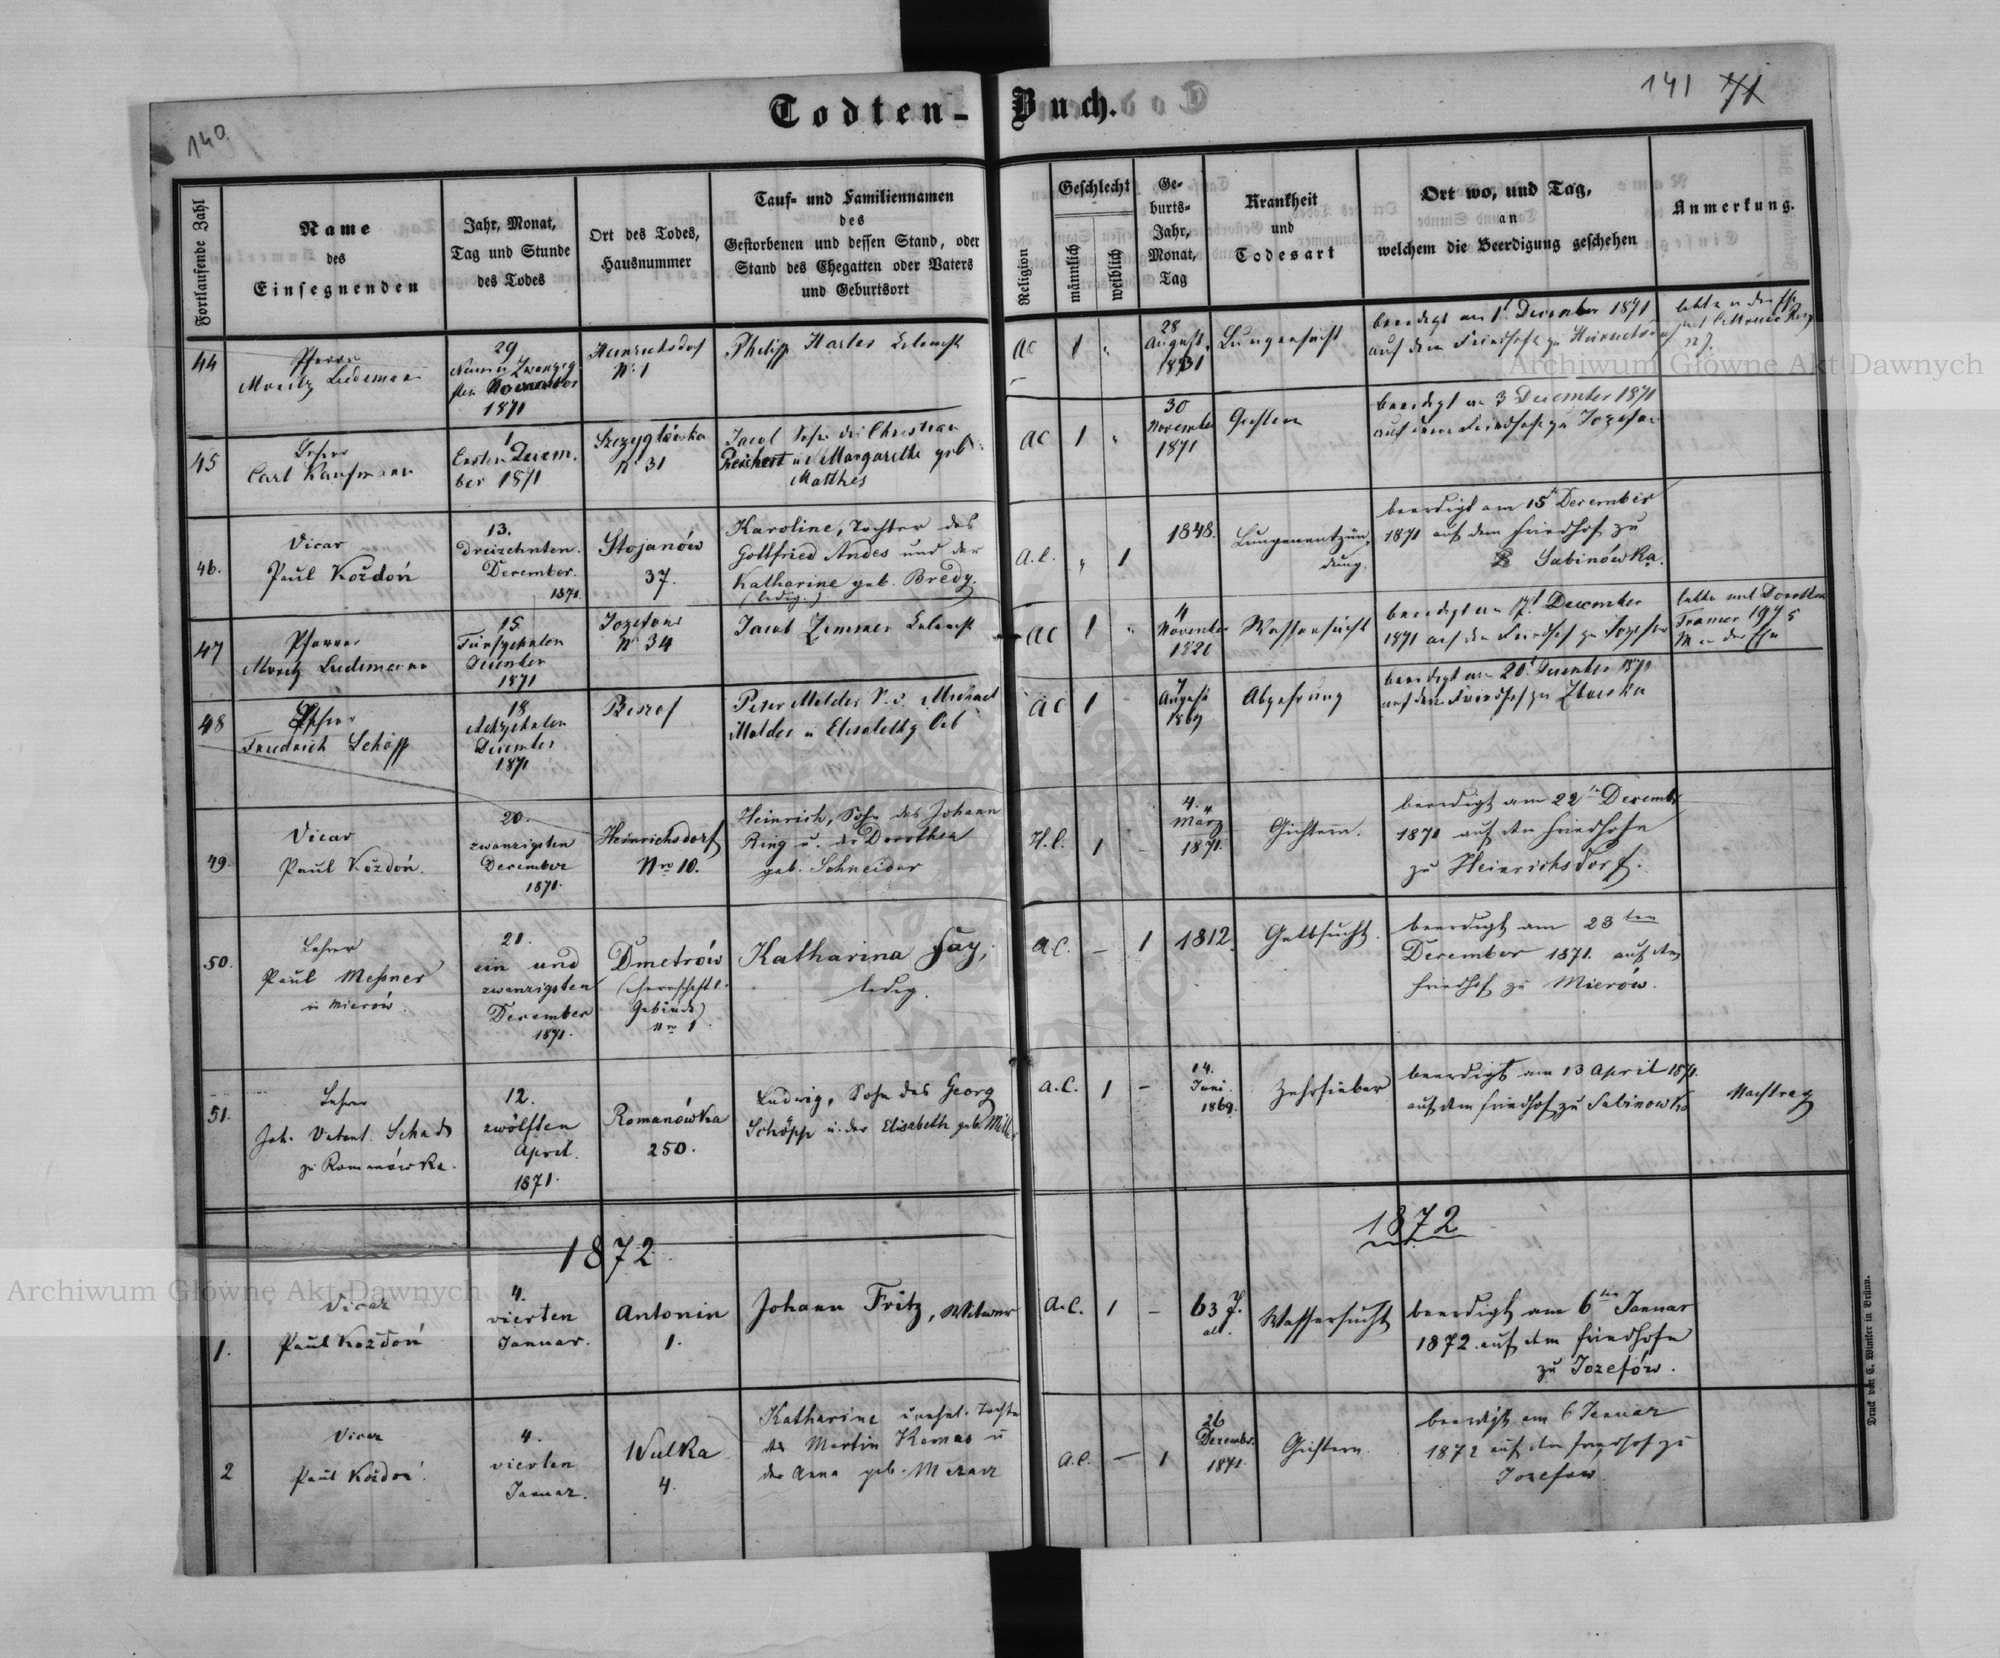 140.
141 71
Todten-Buch.
Fortlaufende Zahl
Name
des
Einsegnenden
Jahr, Monat,
Tag und Stunde
des Todes
Ort des Todes,
Hausnummer
Tauf- und Familiennamen
des
Gestorbenen und dessen Stand, oder
Stand des Ehegatten oder Vaters
und Geburtsort
Religion
Geschlecht
männlich
weiblich
Ge-
burts-
Jahr,
Monat,
Tag
Krankheit
und
Todesart
Ort wo, und Tag,
an
welchem die Beerdigung geschehen
Anmerkung.
44
Pfarrer
Moritz Ludemann
29
Neun u Zwanzig
sten November
1871
Heinrichsdorf
N. 1
Philipp Harles
AC
1
"
28
August
1831
Lungensucht
beerdigt am 1 December 1871
auf dem Friedhofe zu
45
Lehrer
Carl Kaufmann
1
Ersten Decem.
ber 1871
Szczyglówka
N. 31
Jacob Sohn des Christian
Reichert u. d. Margarethe geb.
Matthes
AC
1
"
30
November
1871
Gichtern
beerdigt am 3 December 1871
auf dem Friedhofe zu Jozefow
46.
Vicar
Paul Koždoń
13.
Dreizehnten.
December.
1871.
Stojanów
37.
Karoline, Tochter des
Gottfried Andes und der
Katharine geb. Bredy.
(ledig.)
a.C.
"
1
1848.
Lungenentzün,
dung.
beerdigt am 15 December
1871 auf dem Friedhof zu
Sabinówka.
47
Pfarrer
Moritz Ludemann
15
Fünfzehnten
December
1871
Jozefow
N. 34
Jacob Zimmer
AC
1
"
4
November
1821
Wassersucht
beerdigt am 17 December
1871 auf dem Friedhof zu Jozefow
lebte mit Dorothea
Kramer 19 J 5
M in der Ehe
48
Lehrer
Friedrich Schöpp
18
Achtzehnten
December
1871
Peter Molder S. d. Michael
Molder u Elisabeth
AC
1
-
7
August
1869
Abzehrung
beerdigt am 20 December 1871
auf dem Friedhof zu
49.
Vicar
Paul Koždoń.
20.
zwanzigsten
December
1871.
Heinrichsdorf
Nro 10.
Heinrich, Sohn des Johann
Ring u. der Dorothea
geb. Schneider
H.C.
1
-
4.
März
1871.
Gichtern.
beerdigt am 22ten Decemb.
1871 auf dem Friedhofe
zu Heinrichsdorf.
50.
Lehrer
Paul Meßner
in Mierów.
21.
ein und
zwanzigsten
December
1871.
Dmetrów
(herrschaftl.
Gebäude)
Nro 1.
Katharina Fay,
ledig.
a.C.
-
1
1812.
Gelbsucht.
beerdigt am 23ten
December 1871. auf dem
Friedhof zu Mierów.
51.
Lehrer
Joh. Valent. Schad
zu Romanówka.
12.
zwölften
April.
1871.
Romanówka
250.
Ludwig, Sohn des Georg
Schöpp u. der Elisabeth geb.
a.C.
1
-
14.
Juni.
1869.
Zehrfieber
beerdigt am 13 April 1871.
auf dem Friedhof zu Sabinowka
Nachtrag
1872.
1872
1.
Vicar
Paul Koždoń
4.
vierten
Januar.
Antonin
1.
Johann Fritz, Witwer
a.C.
1
-
63 J.
alt.
Wassersucht
beerdigt am 6ten Januar
1872 auf dem Friedhofe
zu Jozefów.
2
Vicar
Paul Koždoń
4.
vierten
Januar.
Wulka
4.
Katharine unehel. Tochter
des Martin u
der Anna geb.
a.C.
-
1
26
Dezember.
1871.
Gichtern.
beerdigt am 6 Januar
1872 auf dem Friedhof zu
Jozefow.
Druck von C. Winiker in Brünn.
Archiwum Główne Akt Dawnych
Archiwum Główne Akt Dawnych